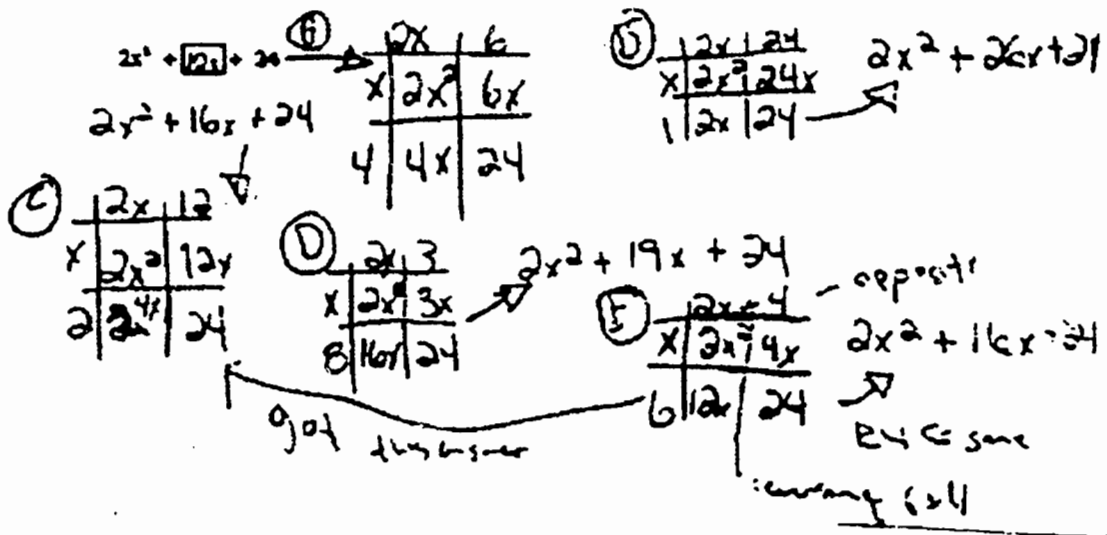 2x² + 12x + 24
G
2x 6
x 2x² 6x
4 4x 24
2x 24
x 2x² 24x
1 2x 24
2x² + 26x + 24
2x² + 16x + 24
C
2x 12
x 2x² 12x
2 4x 24
D
2x 3
x 2x² 3x
8 16x 24
2x² + 19x + 24
E
2x + 4
x 2x² 4x
6 12x 24
2x² + 16x 24
got this answer
same